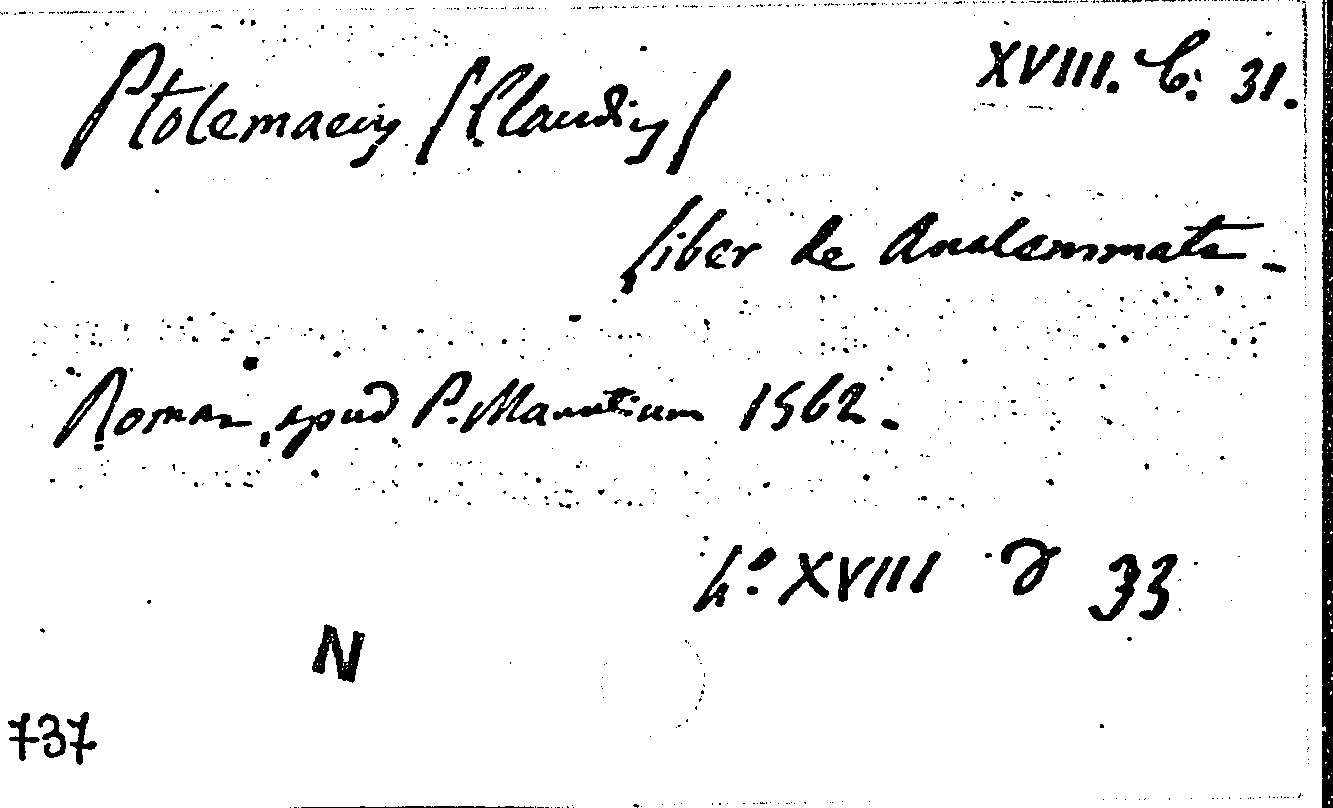 XVIII. C. 31.
Ptolemaeus (Claudius)
Liber de Analemmate -
Romae, apud P. Manutium 1562.
4° XVIII D 33
N
737